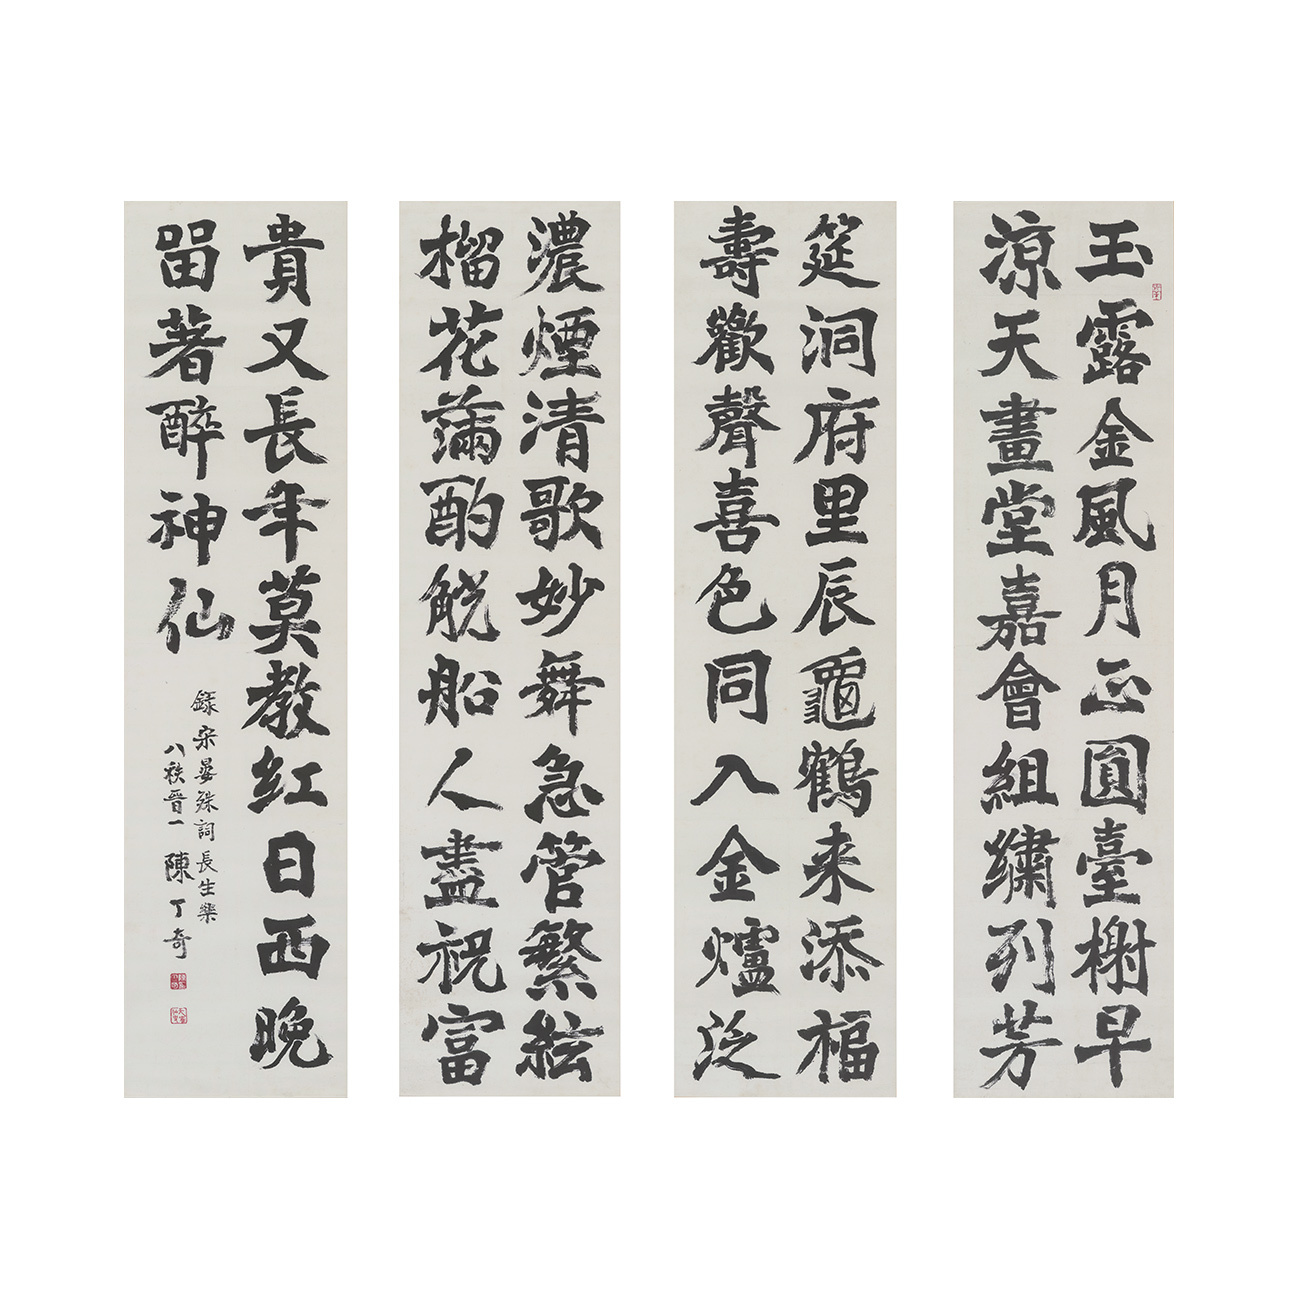 玉露金風月正圓臺榭早
涼天畫堂嘉會組繡列芳
筵洞府里辰龜鶴來添福
壽歡聲喜色同入金爐泛
濃煙清歌妙舞急管繁絃
榴花滿酌觥船人盡祝富
貴又長年莫教紅日西晚
留著醉神仙
錄宋晏殊詞長生樂
八秩晉一陳丁奇